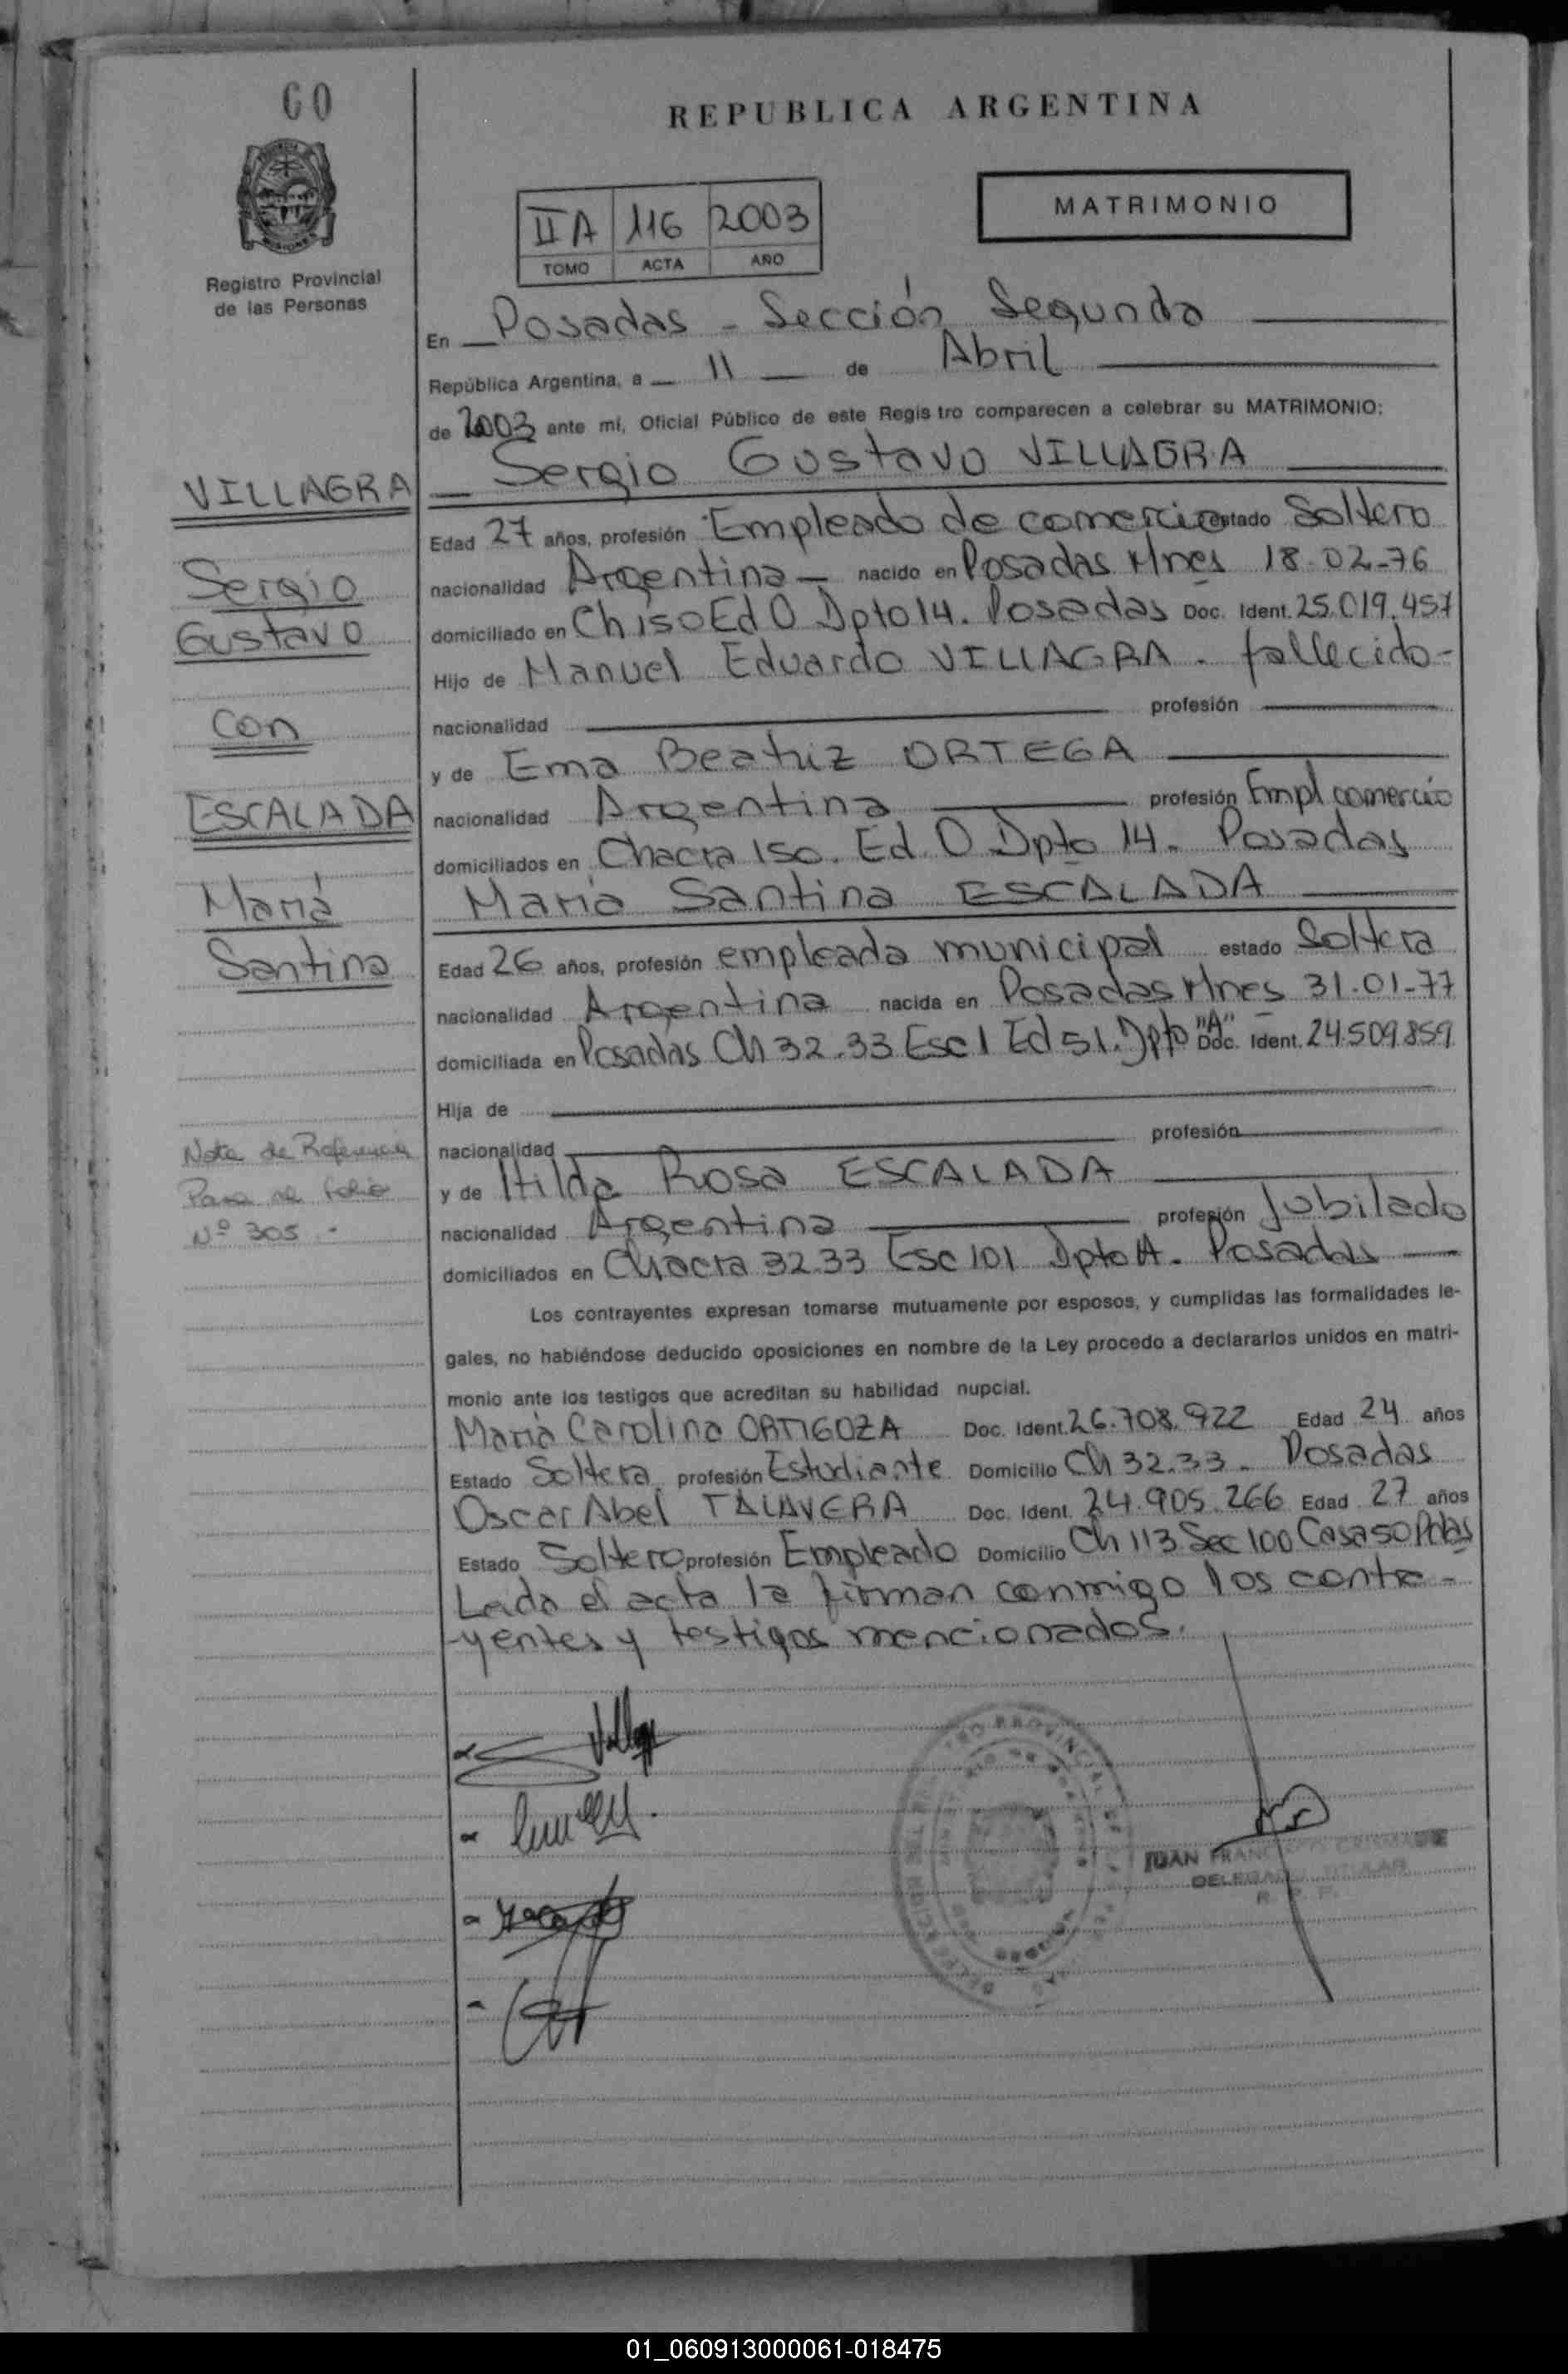 60
REPUBLICA ARGENTINA
MATRIMONIO
IIA 116 2003
TOMO ACTA AÑO
Registro Provincial
de las Personas
En Posadas - Sección Segunda
República Argentina, a 11 de Abril
de 2003 ante mí, Oficial Público de este Registro comparecen a celebrar su MATRIMONIO:
Sergio Gustavo VILLAGRA
Edad 27 años, profesión Empleado de comercio estado Soltero
nacionalidad Argentina nacido en Posadas Mnes 18-02-76
domiciliado en Ch 150 Ed O Dpto 14. Posadas Doc. Ident. 25.019.457
Hijo de Manuel Eduardo VILLAGRA - fallecido-
nacionalidad profesión
y de Ema Beatriz ORTEGA
nacionalidad Argentina profesión Empl comercio
domiciliados en Chacra 150. Ed. O Dpto 14. Posadas
María Santina ESCALADA
Edad 26 años, profesión empleada municipal estado Soltera
nacionalidad Argentina nacida en Posadas Mnes 31-01-77
domiciliada en Posadas Ch 32.33 Esc 1 Ed 51. Dpto "A" Doc. Ident. 24.509.859
Hija de
nacionalidad profesión
y de Hilda Rosa ESCALADA
nacionalidad Argentina profesión Jubilado
domiciliados en Chacra 32.33 Esc 101 Dpto A. Posadas
Los contrayentes expresan tomarse mutuamente por esposos, y cumplidas las formalidades le-
gales, no habiéndose deducido oposiciones en nombre de la Ley procedo a declararlos unidos en matri-
monio ante los testigos que acreditan su habilidad nupcial.
María Carolina ORTIGOZA Doc. Ident. 26.708.922 Edad 24 años
Estado Soltera profesión Estudiante Domicilio Ch 32.33. Posadas
Oscar Abel TALAVERA Doc. Ident. 24.905.266 Edad 27 años
Estado Soltero profesión Empleado Domicilio Ch 113 Sec 100 Casa 50 Pdas
Leida el acta la firman conmigo los contra-
-yentes y testigos mencionados.
VILLAGRA
Sergio
Gustavo
con
ESCALADA
María
Santina
Nota de Referencia
Pasa al folio
Nº 305.-
JUAN FRANCISCO
DELEGADO TITULAR
R. P. P.
01_060913000061-018475